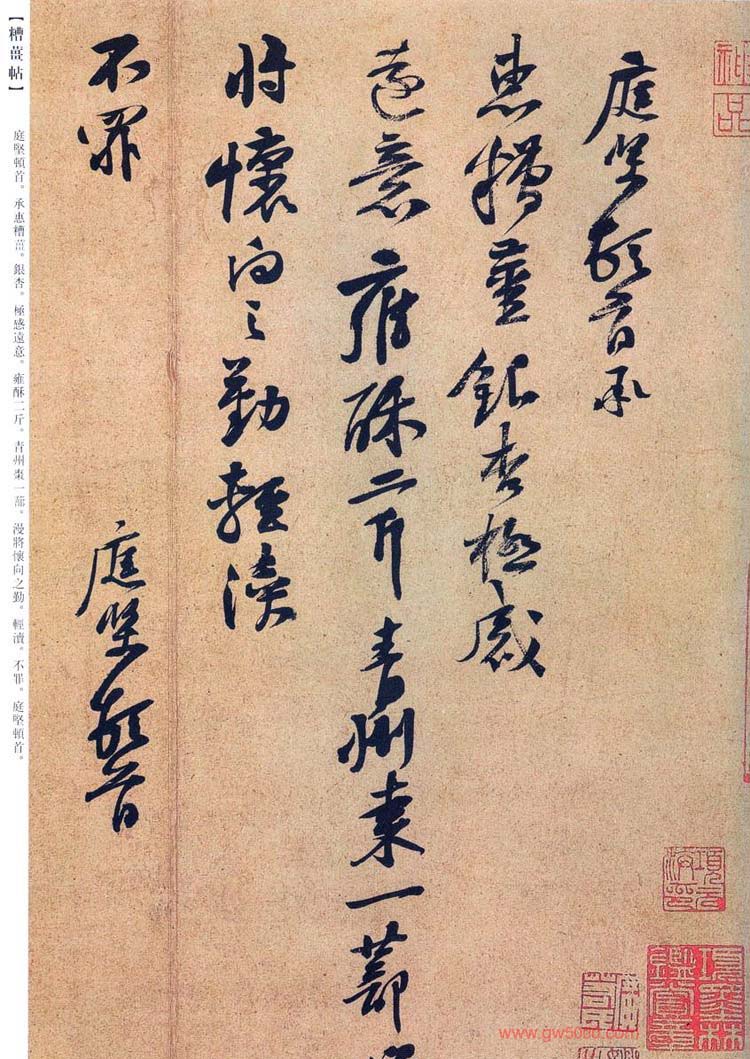 神品
庭堅頓首承
惠糟薑銀杏極感
遠意雍酥二斤青州棗一蔀
将懷向之勤輕瀆
不罪
庭堅頓首
項元汴印
項墨林鑑賞章
【糟薑帖】
庭堅頓首。承惠糟薑。銀杏。極感遠意。雍酥二斤。青州棗一蔀。漫將懷向之勤。輕瀆。不罪。庭堅頓首。